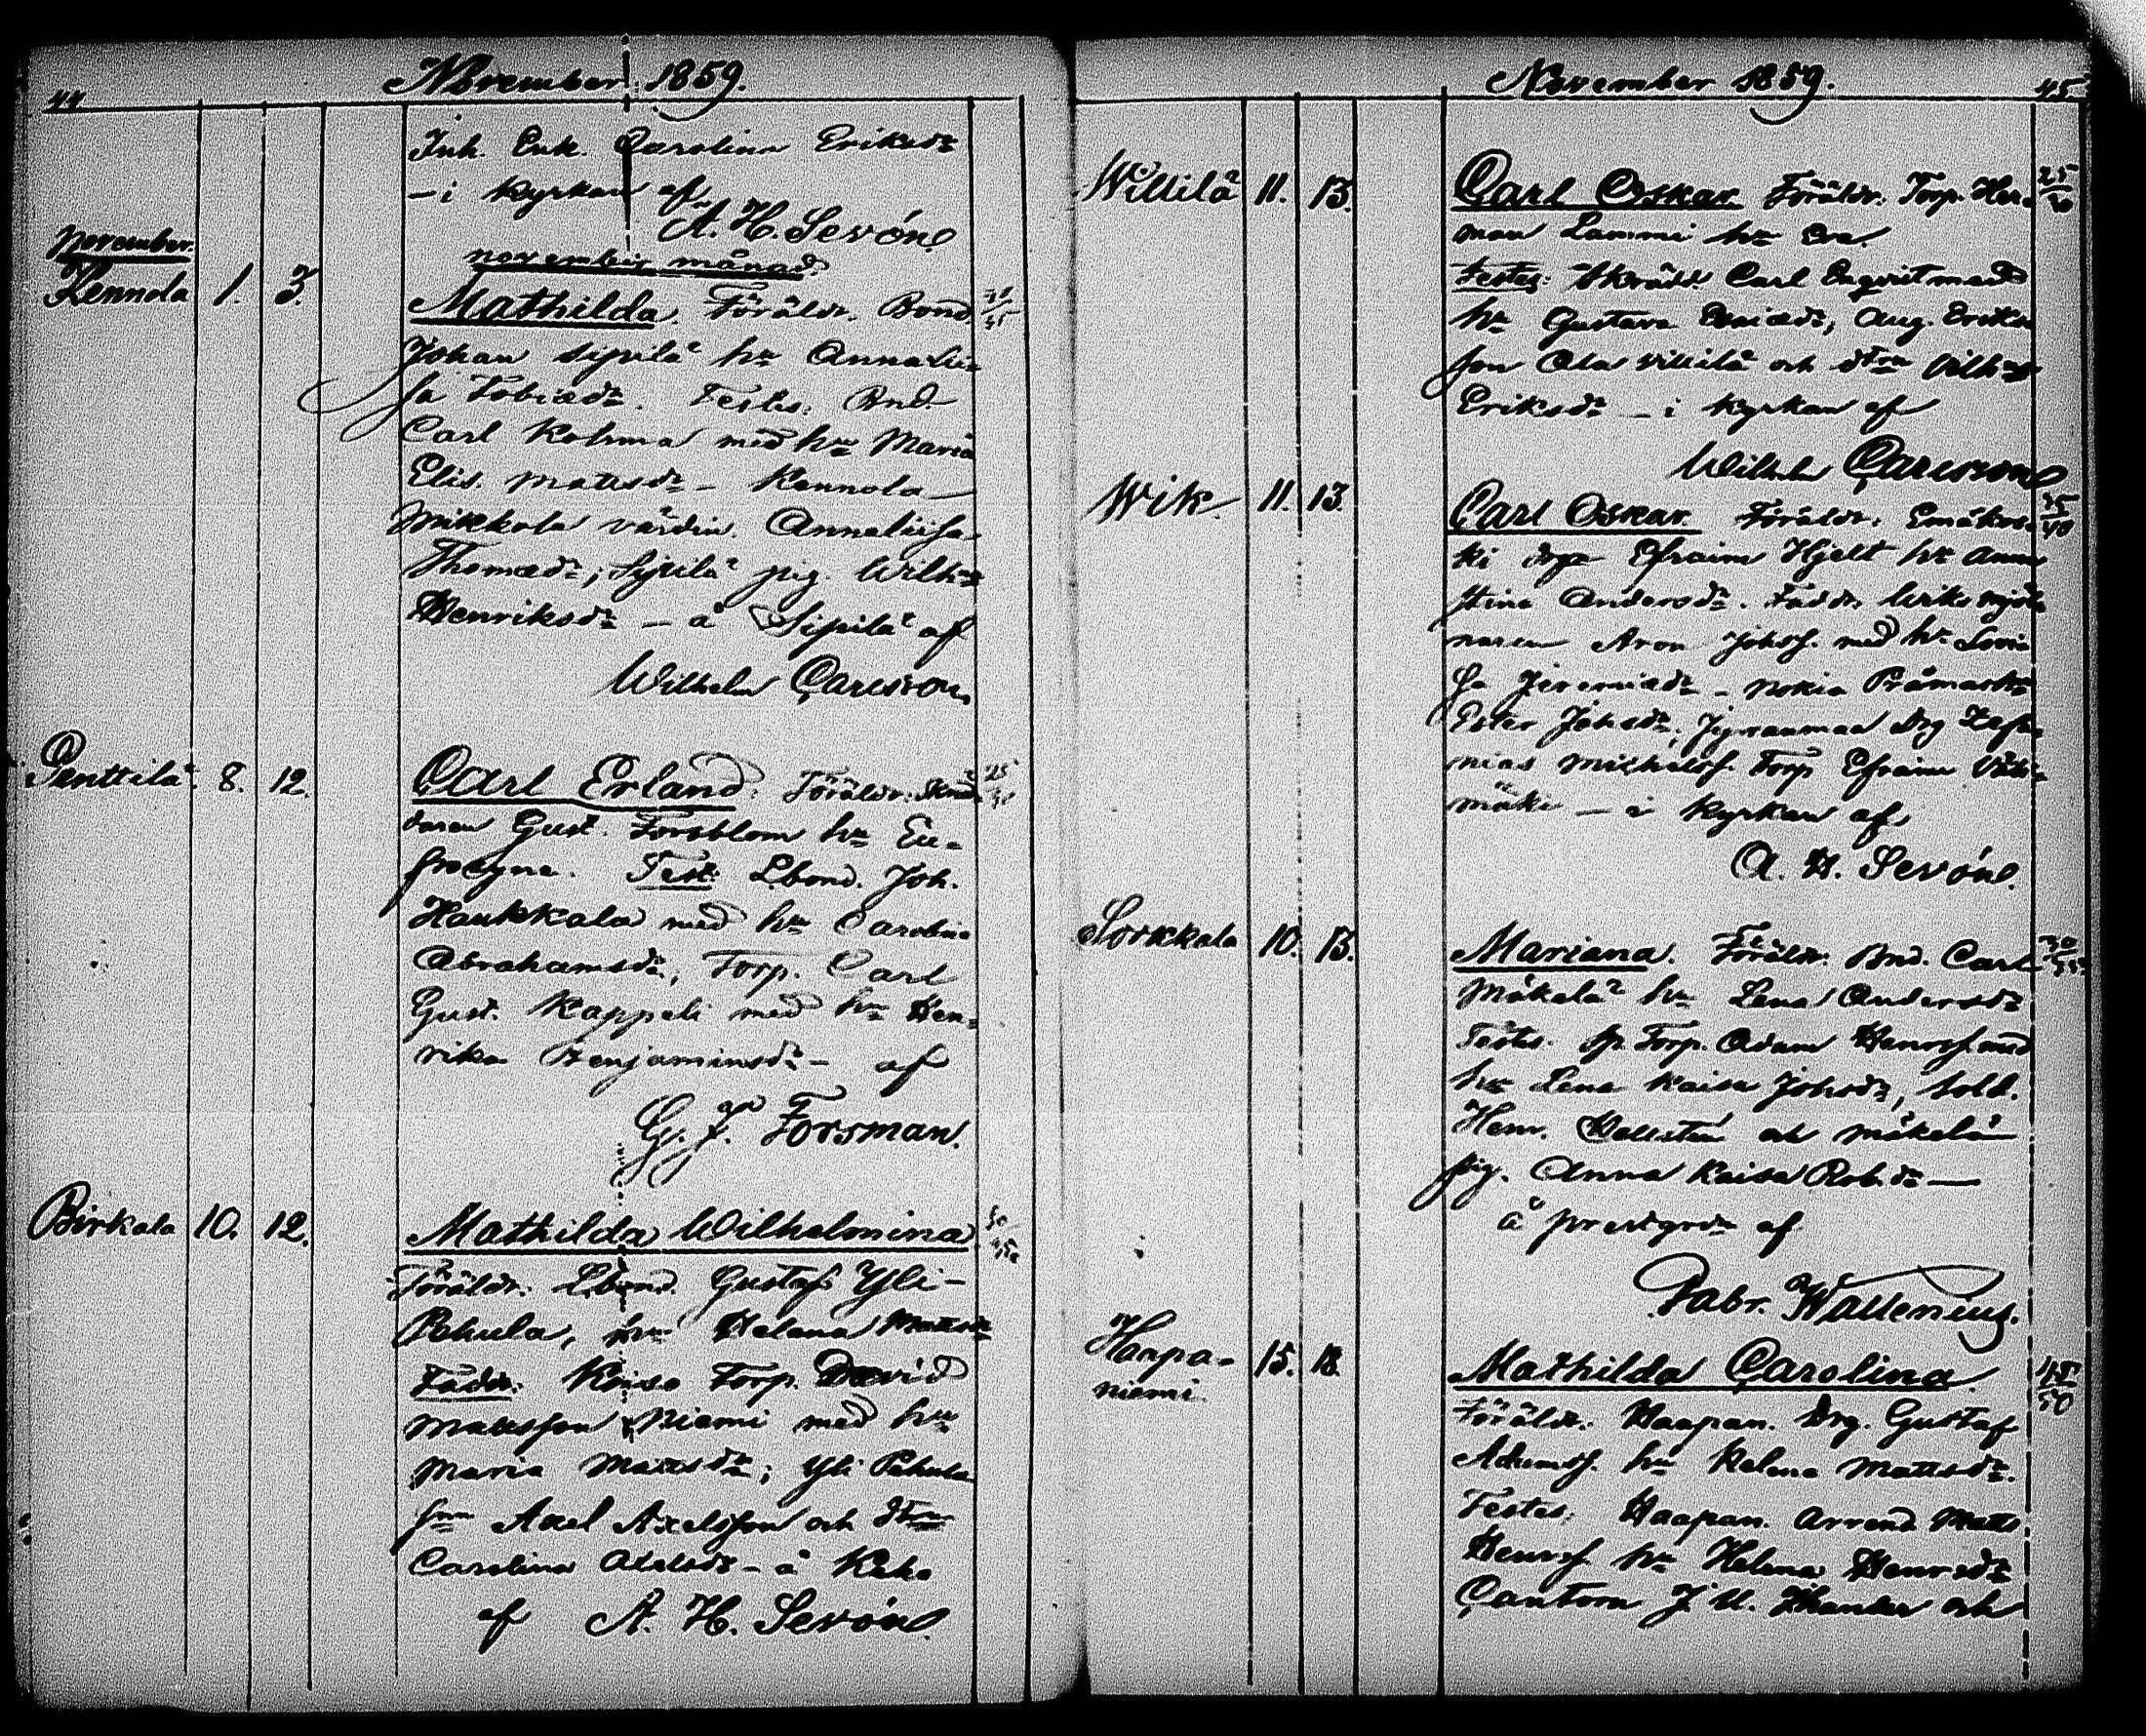 44
November 1859.
Inh. Enk. Carolina Eriksdr
– i kyrkan af
A. H. Sevón
november månad.
november.
Kennola 1. 3.
Mathilda. Föräldr. Bond.
Johan Sipilä hu Anna Li-
sa Tobiædr. Testes: Bnd.
Carl Kohma med hu Maria
Elis. Mattsdr – Kennola
Mikkola värdin. Annaliisa
Thomædr; Sipilä pig. Wilh:a
Henriksdr – å Sipilä af
Wilhelm Carlsson.
Penttilä 8. 12.
Carl Erland. Föräldr: Skräd-
daren Gust. Forsblom hu Eu-
frosyne. Test: Lbond. Joh.
Haukkala med hu Carolina
Abrahamsdr, Torp. Carl
Gust. Kappeli med hu Hen-
rika Benjaminsdr – af
G. F. Forsman.
Birkala 10. 12.
Mathilda Wilhelmina
Föräldr. Lbond. Gustaf Yli-
Pehula, hu Helena Mattsdr
Faddr. Torp. David
Mattsson Niemi med hu
Maria Mattsdr; Yli Pehula
sn Axel Axelsson och dtrn
Carolina Axelsdr – å
af A. H. Sevón.
November 1859.
45
Willilä 11. 13.
Carl Oskar Föräldr: Torp. Her-
man Lammi hu Eva. 25/30
Testes: Skrädd. Carl Enqvist med
hu Gustava, Aug. Eriks-
son Ala Villilä och dtrn Vilh:a
Eriksdr – i kyrkan af
Wilhelm Carlsson
Wik 11. 13.
Carl Oskar Föräldr: Emäkos-
ki Efraim Hjelt hu Anna
Stina Andersdr. Faddr: Wiks mjöl-
naren Aron Johss. med hu Lovi-
sa Jeremiædr – Nokia
Ester Johsdr, Jyränmaa drg Zefa-
nias Michelss. Torp Efraim
mäki – i kyrkan af
A. H. Sevón.
Sorkkala 10. 13.
Mariana. Föräldr: Bnd. Carl
Mäkelä hu Lena Andersdr
Testes. Sp. Torp. Adam Henrss. med
hu Lena Kaisa Johsdr, Sold.
Henr. Hellstén och Mäkelä
pig. Anna Kaisa Robdr –
å prestgrdn af
Fabr. Wallenius.
Haapa-
niemi 15. 18.
Mathilda Carolina. 45/50
Föräldr. Haapan. Drg. Gustaf
Adamss. hu Helena Mattsdr.
Testes, Haapan. Arrend. Matts
Henrss hu Helena Henrsdr
Cantorn J. U. och